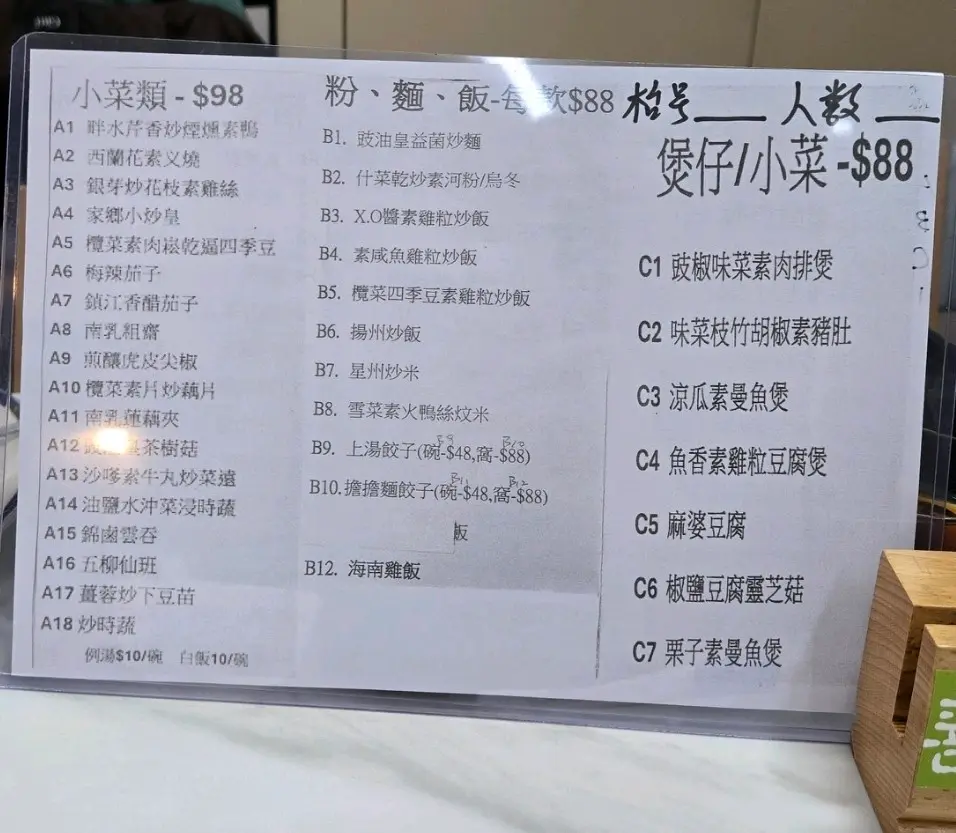 小菜類 - $98
A1 畔水芹香炒煙燻素鴨
A2 西蘭花素义燒
A3 銀芽炒花枝素雞絲
A4 家鄉小炒皇
A5 欖菜素肉崧乾逼四季豆
A6 梅辣茄子
A7 鎮江香醋茄子
A8 南乳粗齋
A9 煎釀虎皮尖椒
A10 欖菜素片炒藕片
A11 南乳蓮藕夾
A12 茶樹菇
A13 沙嗲素牛丸炒菜遠
A14 油鹽水沖菜浸時蔬
A15 錦鹵雲吞
A16 五柳仙班
A17 薑蓉炒下豆苗
A18 炒時蔬
例湯$10/碗 白飯10/碗
粉、麵、飯-每款$88
B1. 豉油皇益菌炒麵
B2. 什菜乾炒素河粉/烏冬
B3. X.O醬素雞粒炒飯
B4. 素咸魚雞粒炒飯
B5. 欖菜四季豆素雞粒炒飯
B6. 揚州炒飯
B7. 星州炒米
B8. 雪菜素火鴨絲炆米
B9 B10
B9. 上湯餃子(碗-$48,窩-$88)
B11 B12
B10. 擔擔麵餃子(碗-$48,窩-$88)
飯
B12. 海南雞飯
枱号___ 人数___
煲仔/小菜 -$88
C1 豉椒味菜素肉排煲
C2 味菜枝竹胡椒素豬肚
C3 涼瓜素曼魚煲
C4 魚香素雞粒豆腐煲
C5 麻婆豆腐
C6 椒鹽豆腐靈芝菇
C7 栗子素曼魚煲